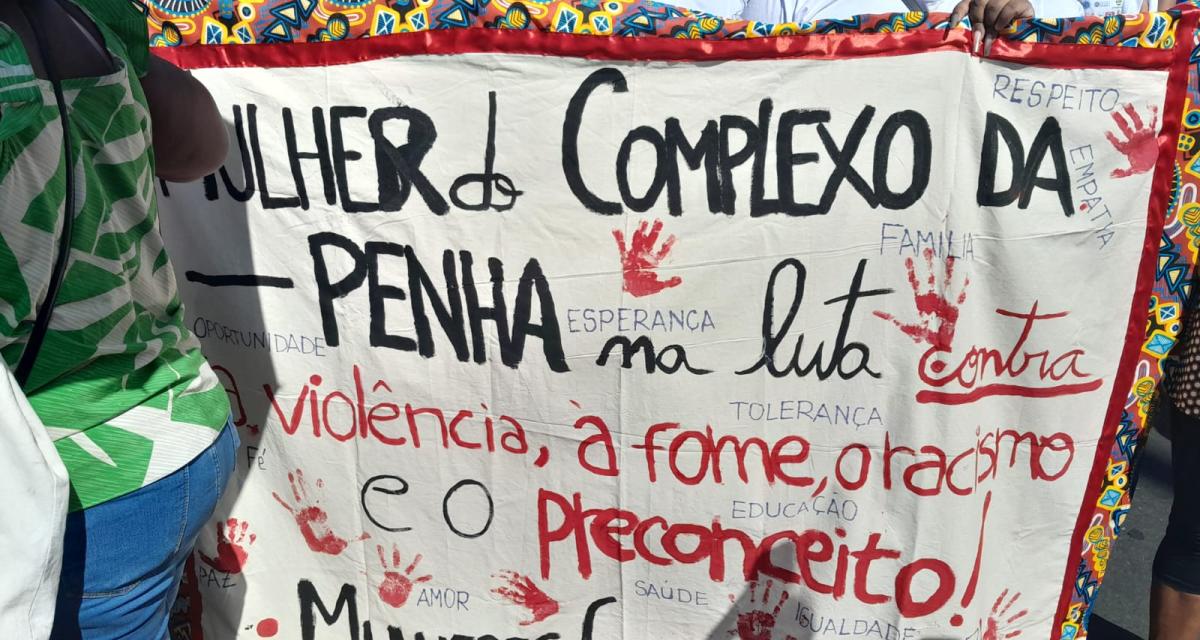 RESPEITO
MULHER do COMPLEXO DA
EMPATYA
FAMILIA
— PENHA na luta contra
ESPERANÇA
OPORTUNIDADE
TOLERANÇA
a violência, à fome, o racismo
Fé
e o preconceito!
EDUCAÇÃO
PAZ
AMOR
SAÚDE
IGUALDADE
MULHERES